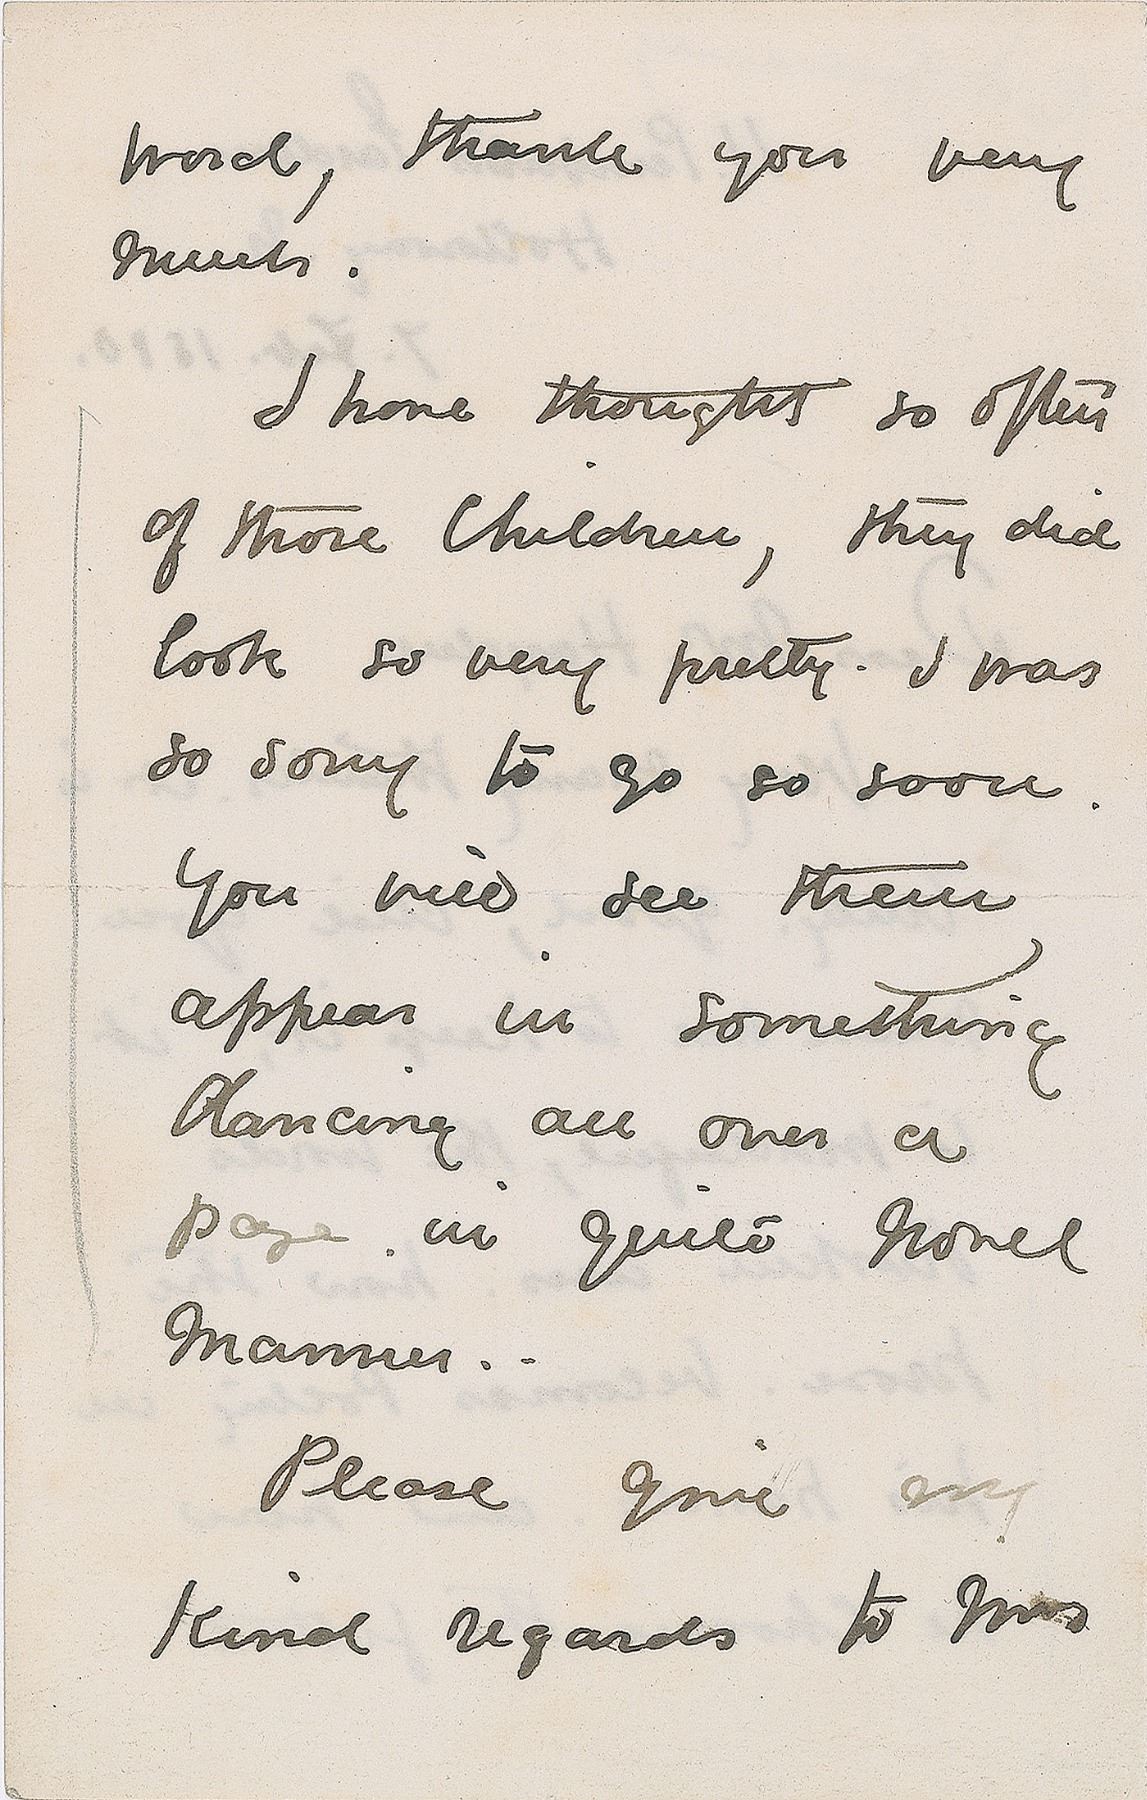 word, thank you very
much.
I have thought so often
of those Children, they did
look so very pretty. I was
so sorry to go so soon.
You will see them
appear in something
Dancing all over a
page in quite Novel
Manner..
Please give my
Kind regards to Mrs